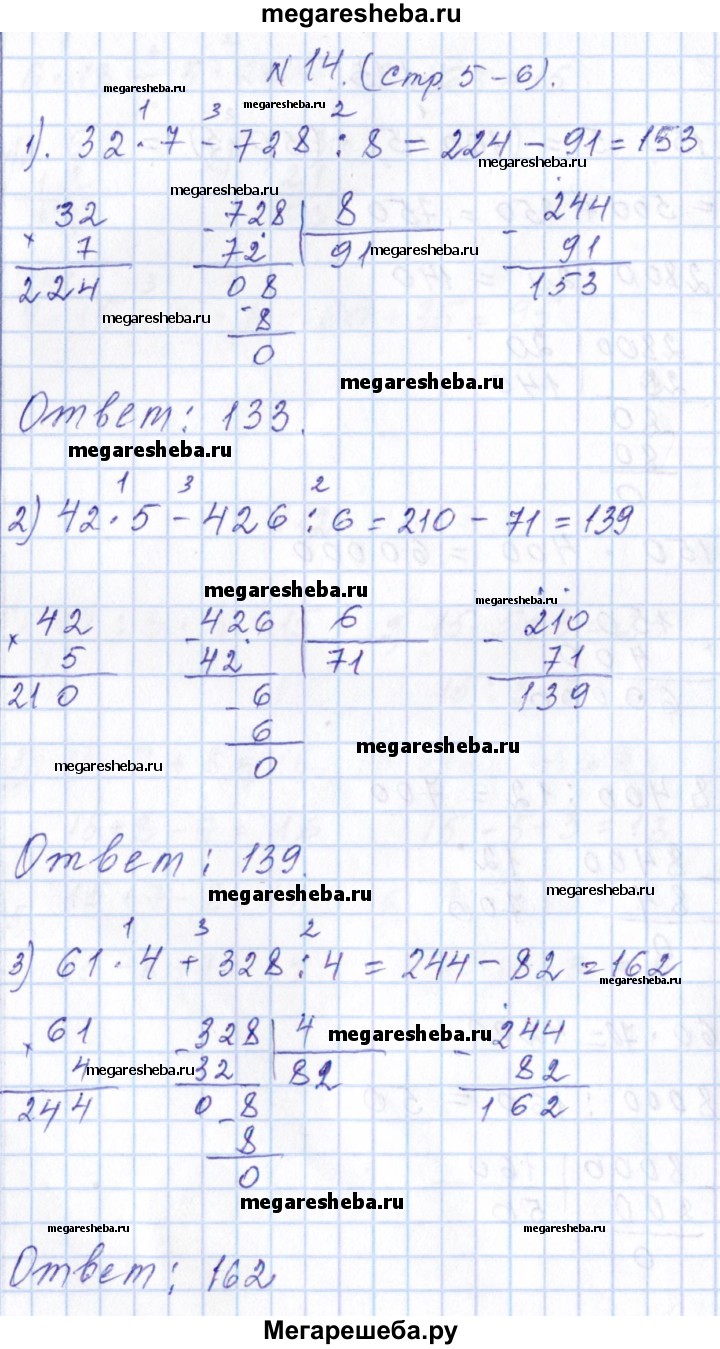 megaresheba.ru
N 14. (стр. 5 - 6).
megaresheba.ru megaresheba.ru
1 3 2
1). 32 · 7 - 728 : 8 = 224 - 91 = 153
megaresheba.ru
megaresheba.ru
32 - 728 | 8 - 244
× 7 72 | 91 91
megaresheba.ru
224 08 153
megaresheba.ru
- 8
0
megaresheba.ru
Ответ: 133.
megaresheba.ru
1 3 2
2) 42 · 5 - 426 : 6 = 210 - 71 = 139
megaresheba.ru
megaresheba.ru
× 42 - 426 | 6 - 210
5 42 | 71 71
210 - 6 139
6
megaresheba.ru
megaresheba.ru
0
Ответ: 139.
megaresheba.ru
megaresheba.ru
1 3 2
3) 61 · 4 + 328 : 4 = 244 - 82 = 162
megaresheba.ru
× 61 - 328 | 4 - 244
megaresheba.ru
4 32 | 82 82
megaresheba.ru
244 0 - 8 162
8
0
megaresheba.ru
megaresheba.ru megaresheba.ru
Ответ: 162
Мегарешеба.ру